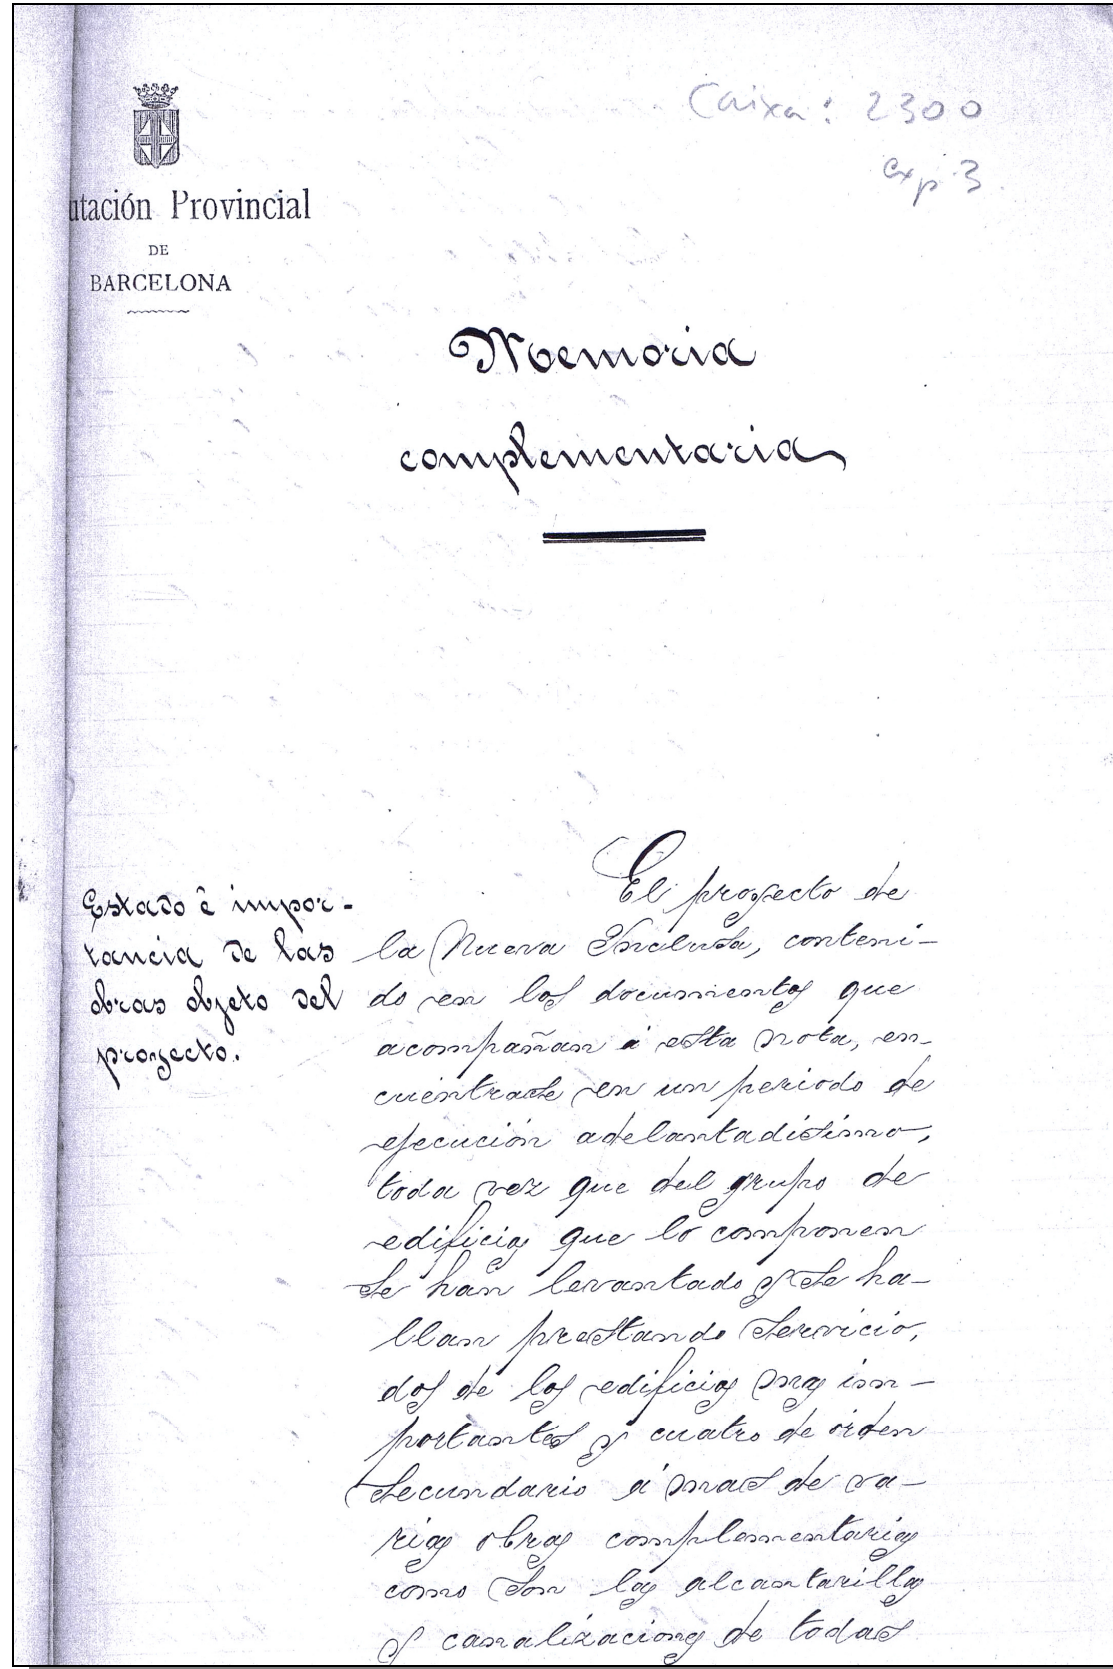 Caixa: 2300
exp 3.
utación Provincial
DE
BARCELONA
Memoria
complementaria
Estado é impor-
tancia de las
obras objeto del
proyecto.
El proyecto de
la Nueva Inclusa, conteni-
do en los documentos que
acompañan á esta nota, en-
cuéntrase en un periodo de
ejecución adelantadísimo,
toda vez que del grupo de
edificios que lo componen
se han levantado y se ha-
llan prestando servicio,
dos de los edificios mas im-
portantes y cuatro de orden
secundario á mas de va-
rias obras complementarias
como son las alcantarillas
y canalizaciones de todas